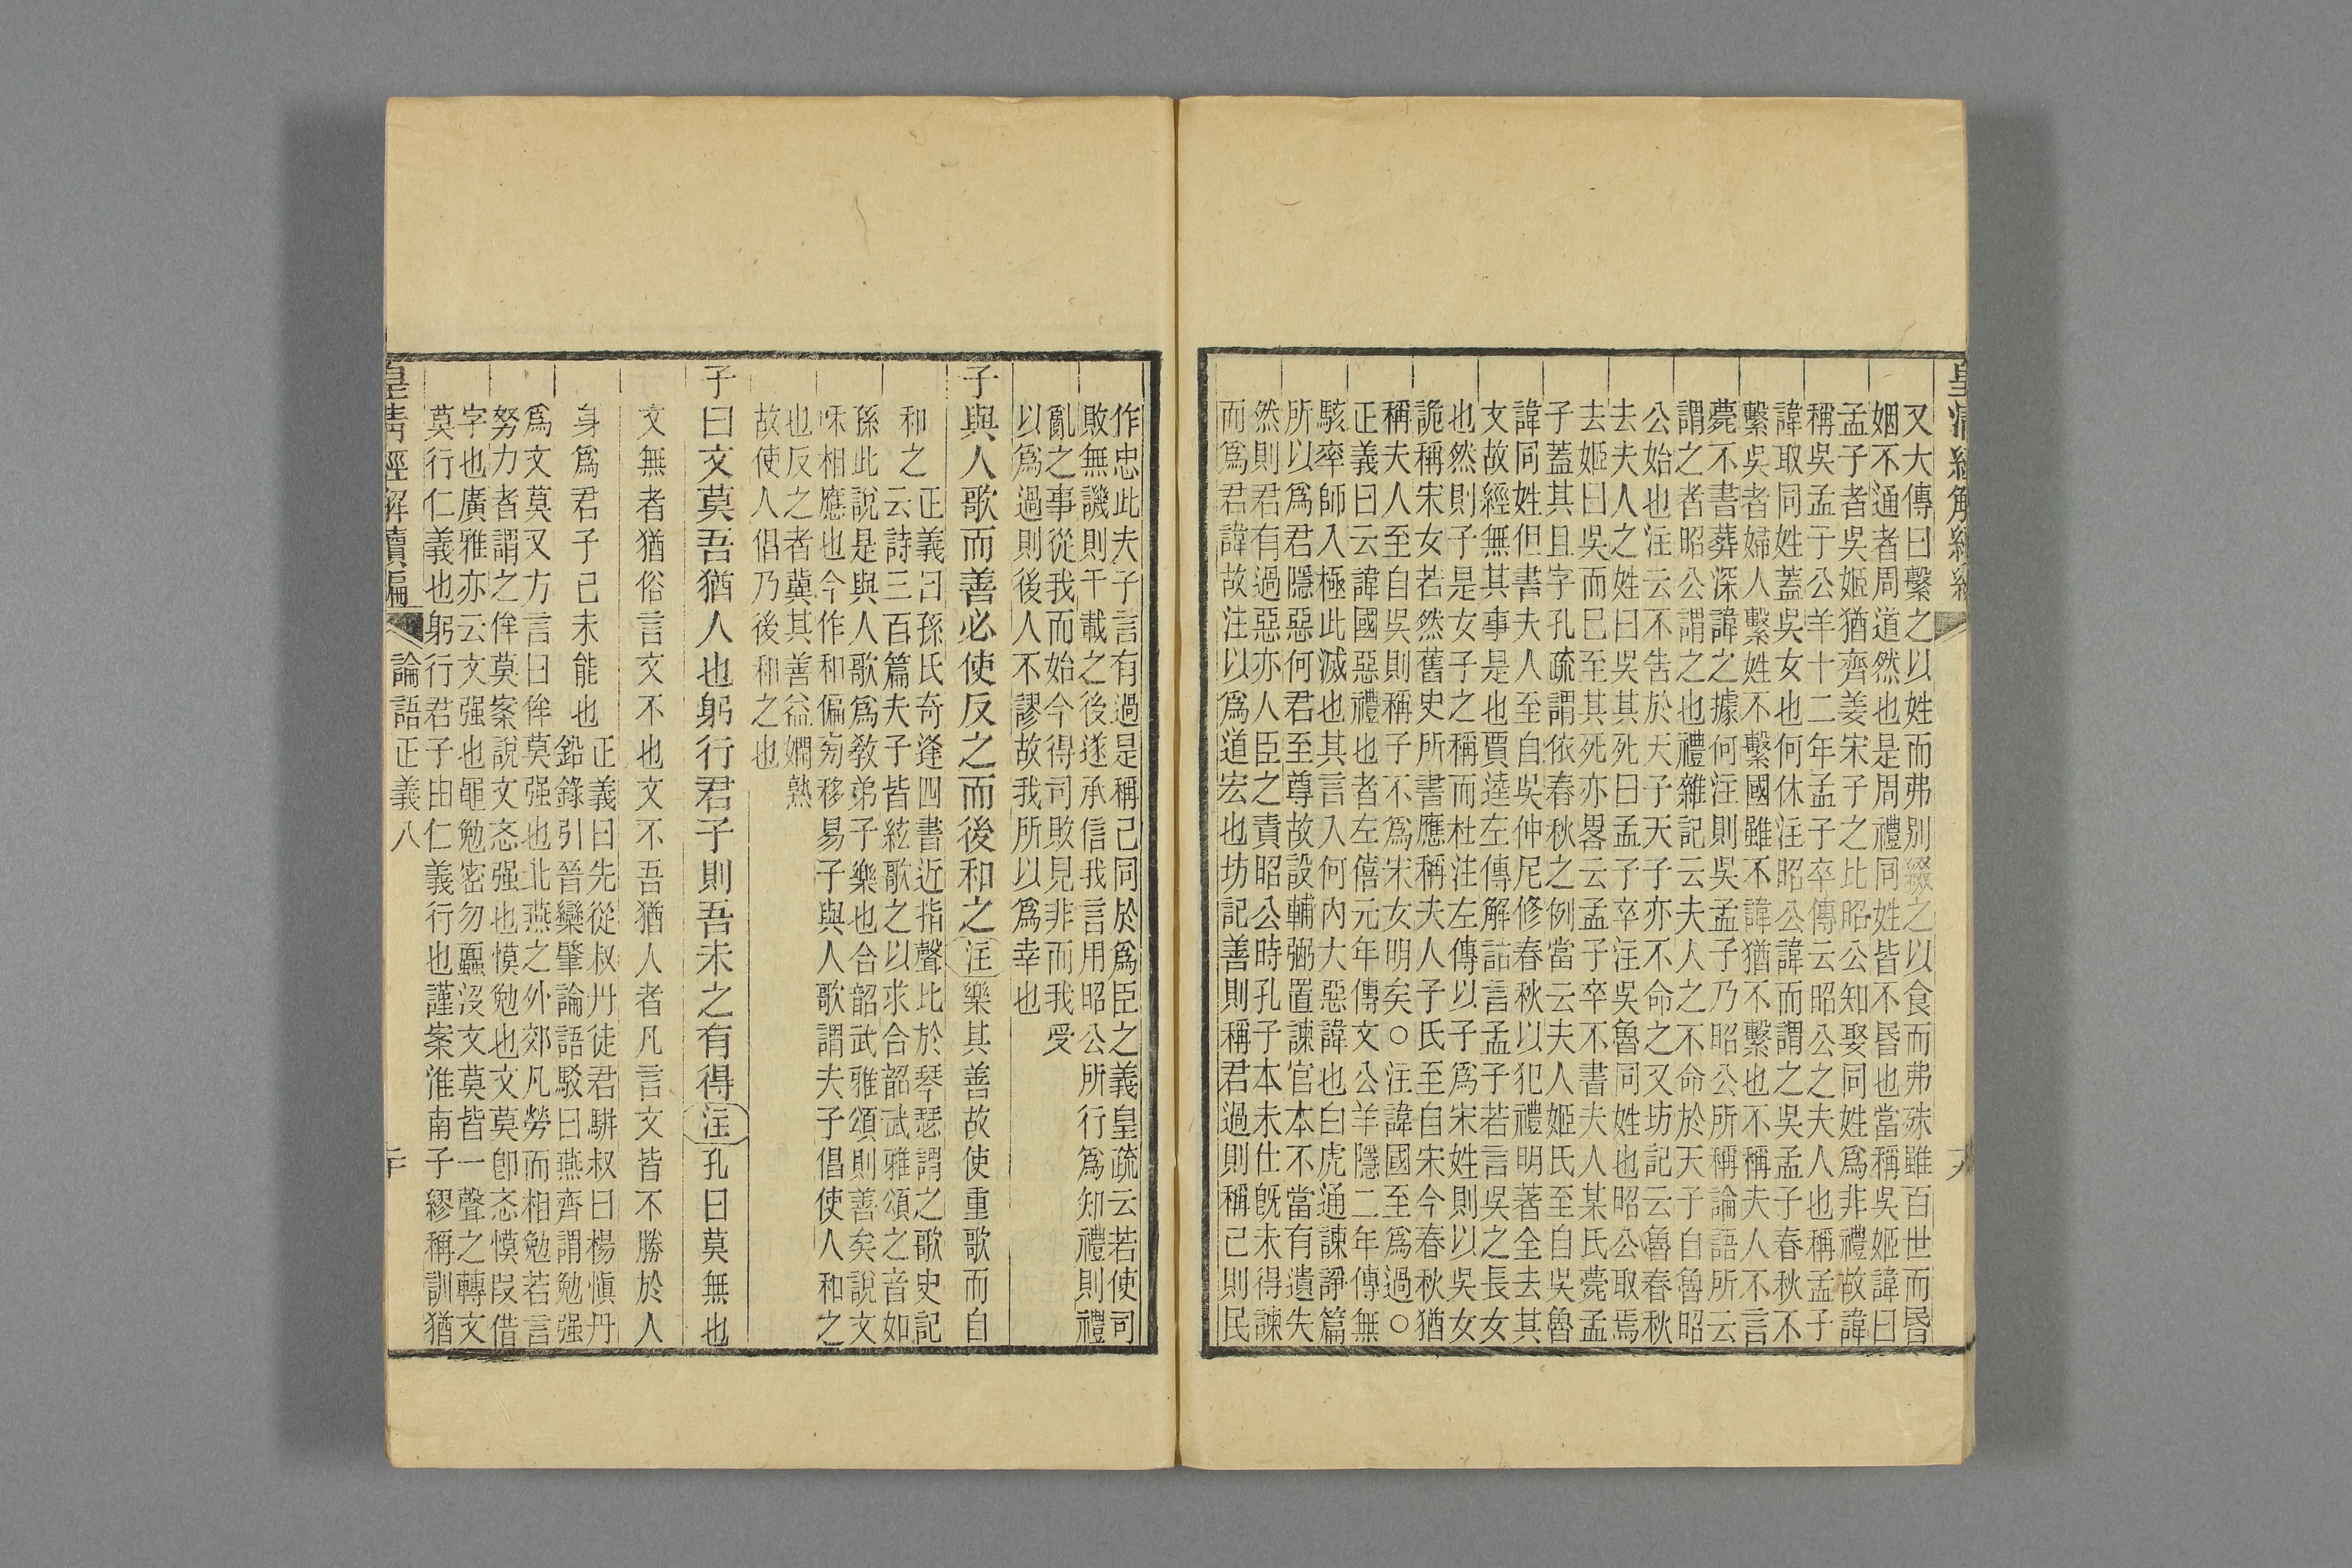 皇清經解續編
又大傳曰繫之以姓而弗別綴之以食而弗殊雖百世而昏
姻不通者周道然也是周禮同姓皆不昏也當稱吳姬諱曰
孟子者吳姬猶齊姜宋子之比昭公知娶同姓爲非禮故諱
稱吳孟子公羊十二年孟子卒傳云昭公之夫人也稱孟子
諱取同姓蓋吳女也何休注昭公諱而謂之吳孟子春秋不
繫吳者婦人繫姓不繫國雖不諱猶不繫也不稱夫人不言
薨不書葬深諱之據何注則吳孟子乃昭公所稱論語所云
謂之者昭公謂之也禮雜記云夫人之不命於天子自魯昭
公始也注云不告於天子天子亦不命之又坊記云魯春秋
去夫人之姓曰吳其死曰孟子卒注吳魯同姓也昭公取焉
去姬曰吳而巳至其死亦畧云孟子卒不書夫人某氏薨孟
子蓋其且字孔疏謂依春秋之例當云夫人姬氏至自吳魯
諱同姓但書夫人至自吳仲尼修春秋以犯禮明著全去其
文故經無其事是也賈逵左傳解詁言孟子若言吳之長女
也然則子是女子之稱而杜注左傳以子爲宋姓則以吳女
詭稱宋女若然舊史所書應稱夫人子氏至自宋今春秋猶
稱夫人至自吳則稱子不爲宋女明矣○注諱國至爲過○
正義曰云諱國惡禮也者左僖元年傳文公羊隱二年傳無
駭率師入極此滅也其言入何內大惡諱也白虎通諫諍篇
所以爲君隱惡何君至尊故設輔弼置諫官本不當有遺失
然則君有過惡亦人臣之責昭公時孔子本未仕旣未得諫
而爲君諱故注以爲道宏也坊記善則稱君過則稱己則民
作忠此夫子言有過是稱己同於爲臣之義皇疏云若使司
敗無譏則千載之後遂承信我言用昭公所行爲知禮則禮
亂之事從我而始今得司敗見非而我受
以爲過則後人不謬故我所以爲幸也
子與人歌而善必使反之而後和之注樂其善故使重歌而自
和之
正義曰孫氏奇逢四書近指聲比於琴瑟謂之歌史記
云詩三百篇夫子皆絃歌之以求合韶武雅頌之音如
孫此說是與人歌爲敎弟子樂也合韶武雅頌則善矣說文
咊相應也今作和偏㫄移易子與人歌謂夫子倡使人和之
也反之者冀其善益嫻熟
故使人倡乃後和之也
子曰文莫吾猶人也躬行君子則吾未之有得注孔曰莫無也
文無者猶俗言文不也文不吾猶人者凡言文皆不勝於人
身爲君子己未能也
正義曰先從叔丹徒君騈叔曰楊愼丹
鉛錄引晉欒肇論語駁曰燕齊謂勉强
爲文莫又方言曰侔莫强也北燕之外郊凡勞而相勉若言
努力者謂之侔莫案說文忞强也慔勉也文莫卽忞慔叚借
字也廣雅亦云文强也黽勉密勿蠠沒文莫皆一聲之轉文
莫行仁義也躬行君子由仁義行也謹案淮南子繆稱訓猶
皇清經解續編
論語正義八